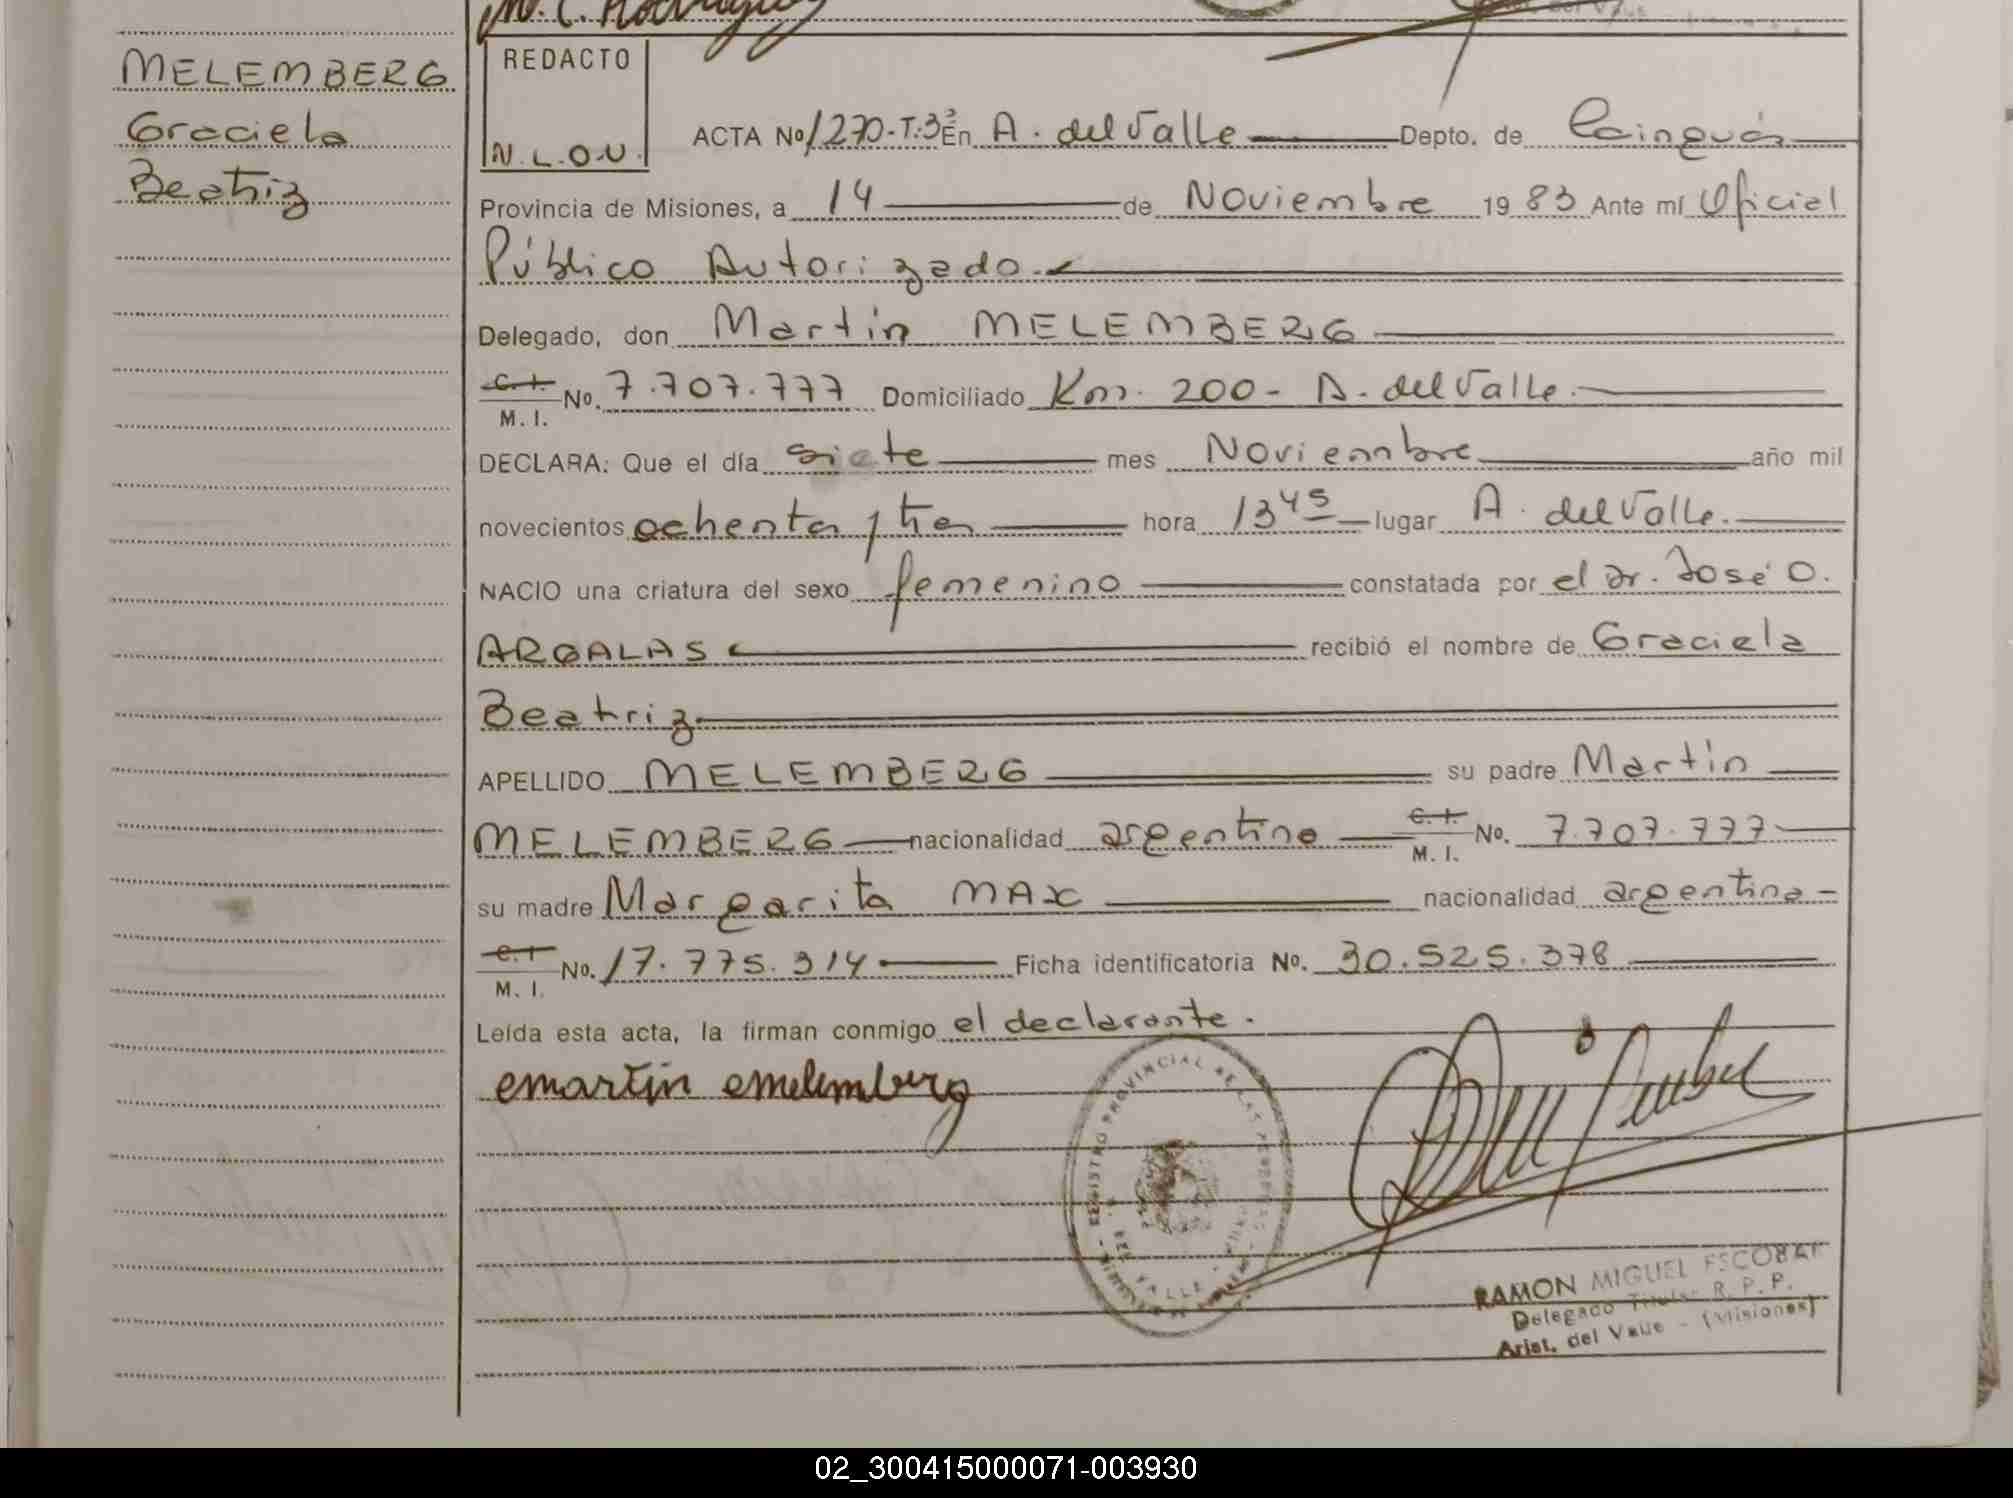 M. C. Rodriguez
MELEMBERG
Graciela
Beatriz
REDACTO
N.L.O.U.
ACTA No 1270-T:3º En A. del Valle Depto. de Cainguás
Provincia de Misiones, a 14 de Noviembre 1983 Ante mí Oficial
Público Autorizado.
Delegado, don Martín MELEMBERG
C.I. M. I. No. 7.707.777 Domiciliado Km. 200- A. del Valle.
DECLARA: Que el día siete mes Noviembre año mil
novecientos ochenta y tres hora 13 45 lugar A. del Valle.
NACIO una criatura del sexo femenino constatada por el Dr. José O.
ARGALAS recibió el nombre de Graciela
Beatriz
APELLIDO MELEMBERG su padre Martín
MELEMBERG nacionalidad argentino C.I. M. I. No. 7.707.777
su madre Margarita MAX nacionalidad argentina
C.I. M. I. No. 17.775.314 Ficha identificatoria No. 30.525.378
Leída esta acta, la firman conmigo el declarante.
emartin emelemberg
REGISTRO PROVINCIAL DE LAS PERSONAS
DEL VALLE
RAMON MIGUEL ESCOBAR
Delegado Titular R. P. P.
Arist. del Valle - (Misiones)
02_300415000071-003930